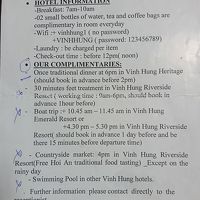 HOTEL INFORMATION
-Breakfast: 7am-10am
-02 small bottles of water, tea and coffee bags are
complimentary in room everyday
-Wifi :+ vinhhung1 ( no password)
+VINHHUNG ( password: 123456789)
-Laundry : be charged per item
-Check-out time : before 12pm( noon)
OUR COMPLIMENTARIES:
Once traditional dinner at 6pm in Vinh Hung Heritage
(should book in advance before 2pm)
- 30 minutes feet treatment in Vinh Hung Riverside
Resort ( working time : 9am-6pm, should book in
advance 1hour before)
- Boat trip :+ 10.45 am – 11.45 am in Vinh Hung
Emerald Resort or
+4.30 – 5.30 pm in Vinh Hung Riverside
Resort( should book in advance 1 day before and be
there 15 minutes before departure time)
- Countryside market: 4pm in Vinh Hung Riverside
Resort(Free Hoi An traditional food tasting) . Except on the
rainy day
- Swimming Pool in other Vinh Hung hotels.
Further information please contact directly to the